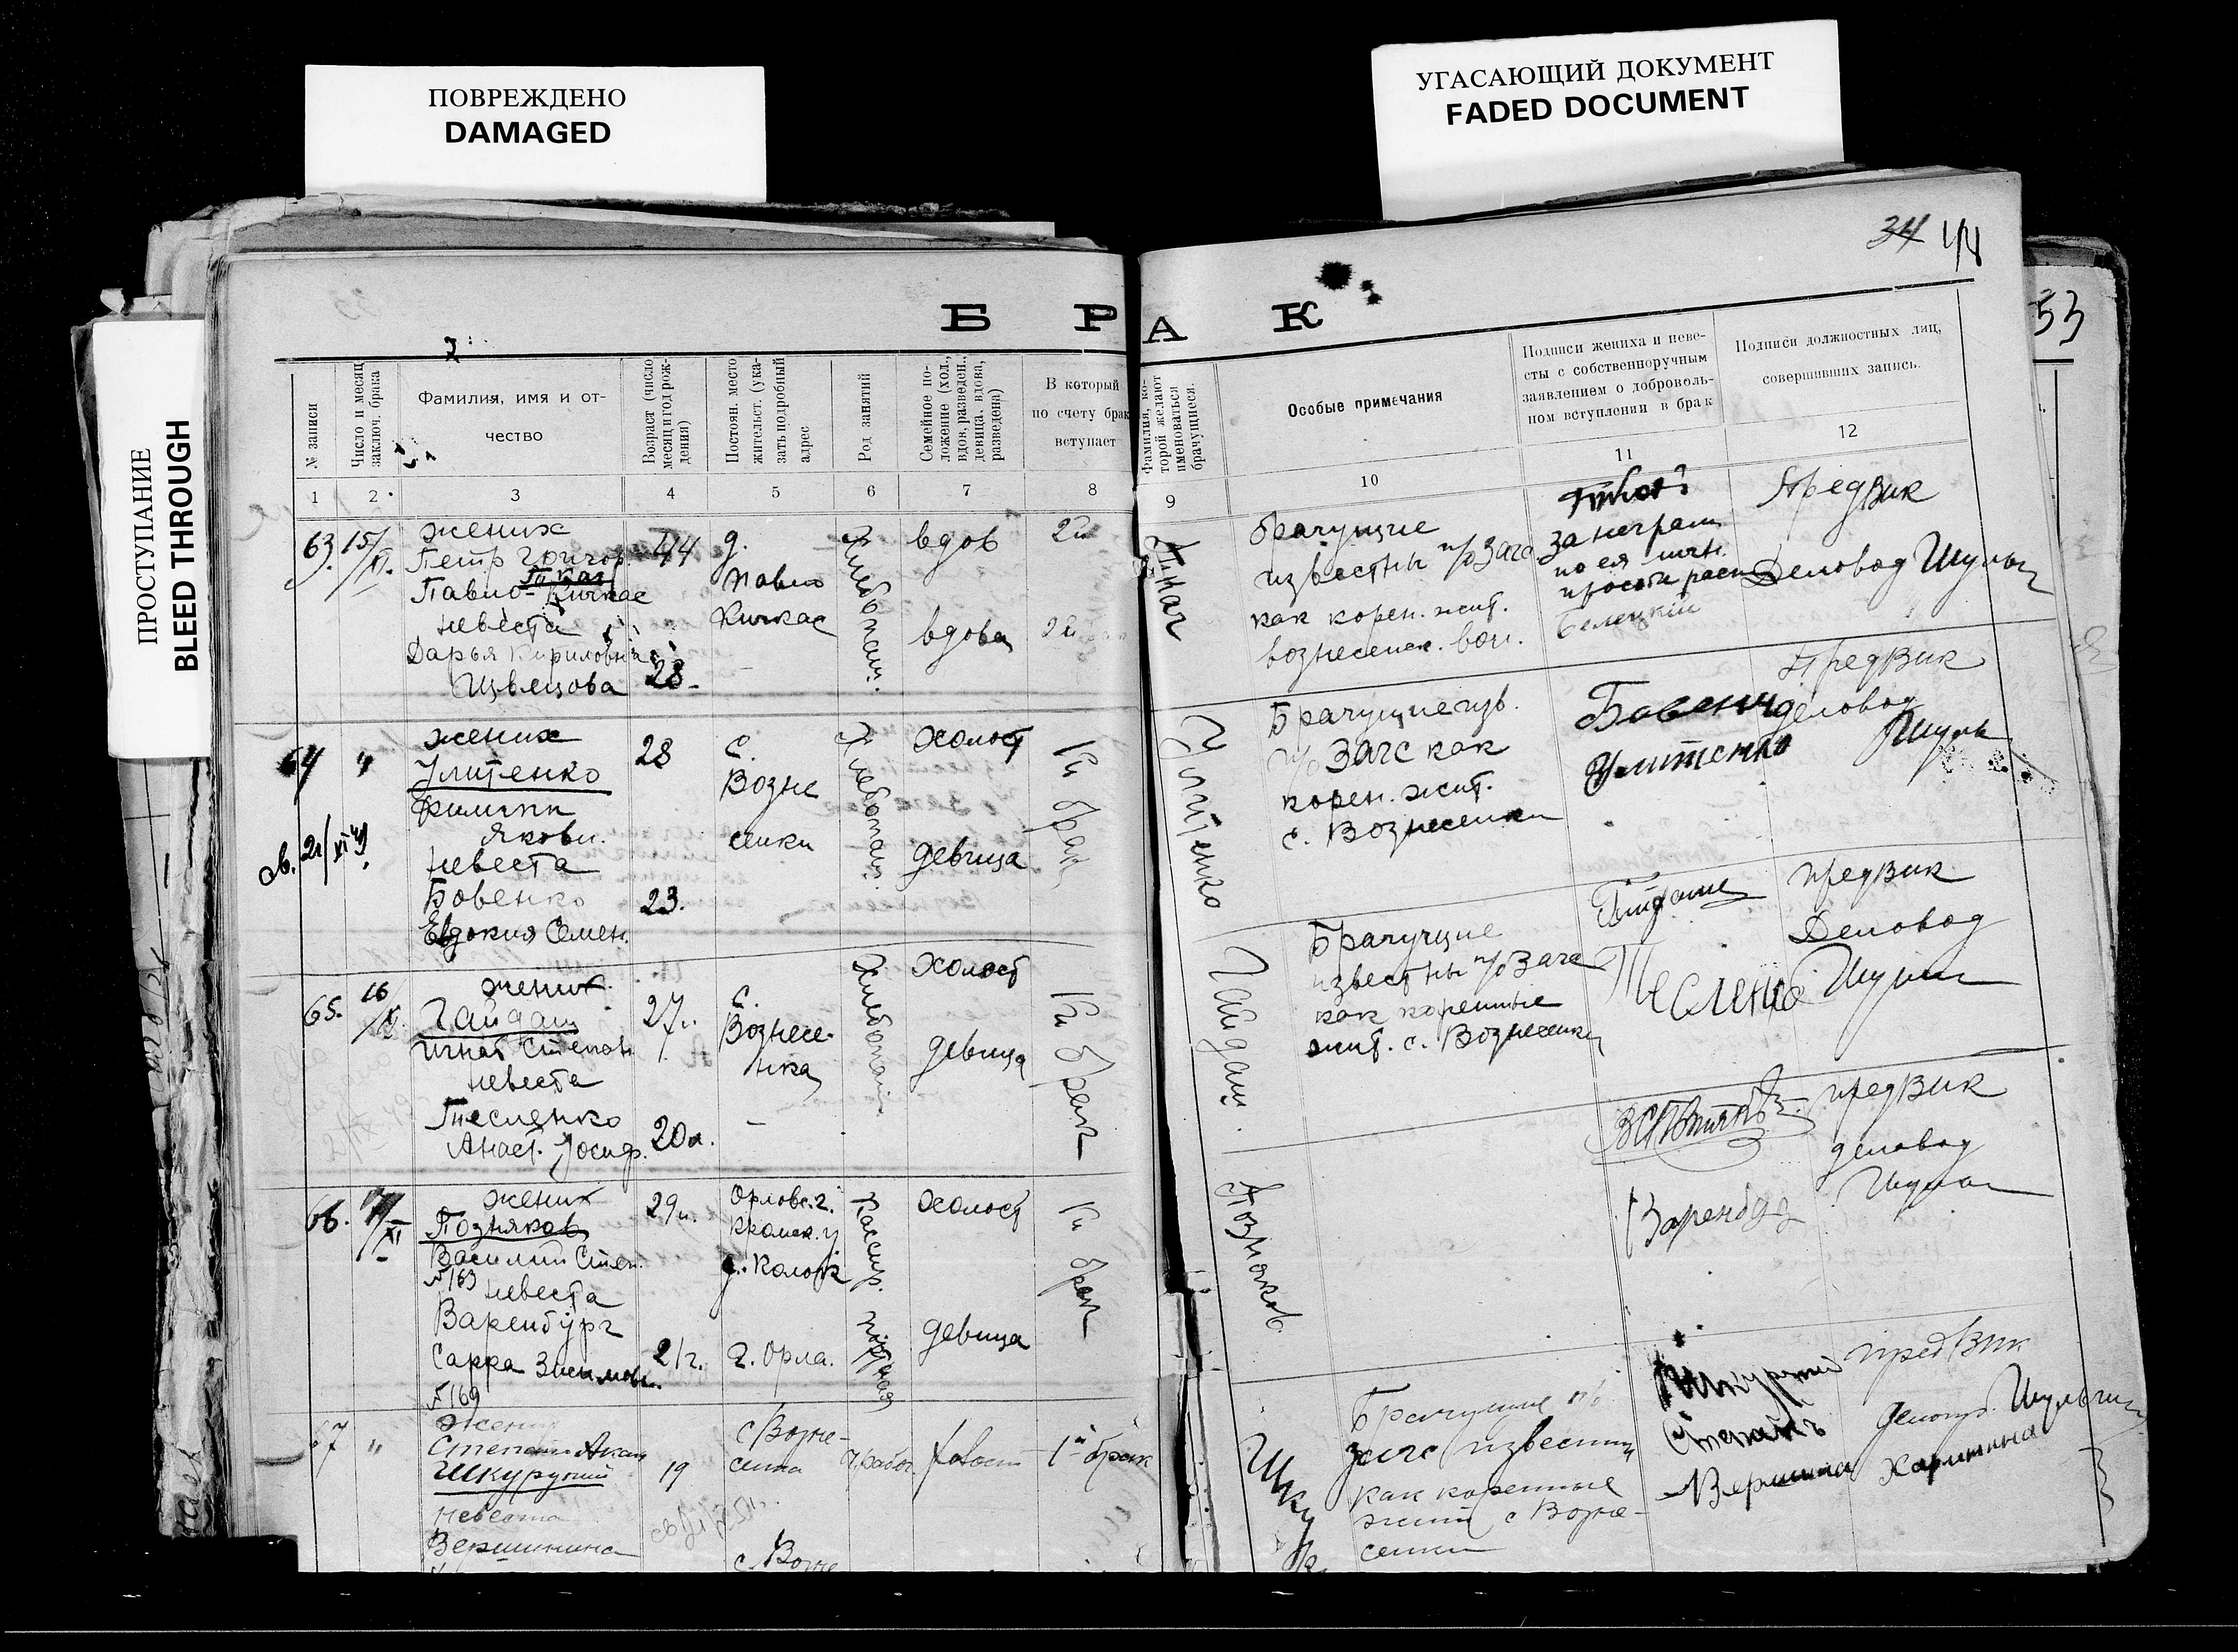 ПОВРЕЖДЕНО
DAMAGED
УГАСАЮЩИЙ ДОКУМЕНТ
FADED DOCUMENT
ПРОСТУПАНИЕ
BLEED THROUGH
34 44
53
Б Р А К
№ записи
Число и месяц
заключ. брака
Фамилия, имя и от-
чество
Возраст (число
месяц и год рож-
дения)
Постоян. место
жительст. (ука-
зать подробный
адрес
Род занятий
Семейное по-
ложение (хол.,
вдов, разведен.,
девица, вдова,
разведена)
В который
по счету брак
вступает
Фамилия, ко-
торой желают
именоваться
брачущиеся.
Особые примечания
Подписи жениха и неве-
сты с собственноручным
заявлением о доброволь-
ном вступлении в брак
Подписи должностных лиц,
совершивших запись.
1 2 3 4 5 6 7 8 9 10 11 12
63. 15/XI.
жених
Петр Григор.
Павло-Кичкас
невеста
Дарья Кириловна
Швецова
44
28
д.
Павло
Кичкас
Хлебопаш.
вдов
вдова
2й
2й
Ткач
брачущие
известны п/о Загс
как корен. жит.
вознесенск. вол.
за неграм.
по ея личн.
просьбе расп.
Белецкий
Предвик
Деловод Шульг
64 "
св. 21/XI
жених
Улитенко
Филипп
Яковл.
невеста
Бовенко
Евдокия Семен.
28
23.
с.
Возне
сенки
Хлебопаш.
холост
девица
1й брак
Улитенко
Брачущие изв.
п/о Загс как
корен. жит.
с. Вознесенки
Бовенко
Улитенко
Предвик
деловод
Шульг
65. 16/XI.
жених
Гайдаш
Игнат Степан.
невеста
Тесленко
Анаст. Иосиф.
27 л.
20 л.
с.
Вознесе-
нка
Хлебопаш
холост
девица
1й брак
Гайдаш.
Брачущие
известны п/о Загс
как коренные
жит. с. Вознесенки
Гайдаш
Тесленко
предвик
Деловод
Шульг
66. 17/XI
жених
Позняков
Василий Степ.
№ 163
невеста
Варенбург
Сарра Зисимовн.
№ 169
29 л.
21 г.
Орловс. г.
Кромск. у
г. Орла.
Кассир.
портная
холост
девица
1й брак
Позняков.
Варенбург
предвик
деловод
Шульг
67 "
жених
Степан Акам
Шкурупий
невеста
Вершинина
19
с Возне-
сенка
с. Возне
Ч. рабоч.
холост
1й брак
Шкуру
Брачущие п/о
загс известны
как коренные
жит с Возне-
сенки
Шкурупий
Степанъ
Вершина
предвик
деловод. Шульгин
Харитина